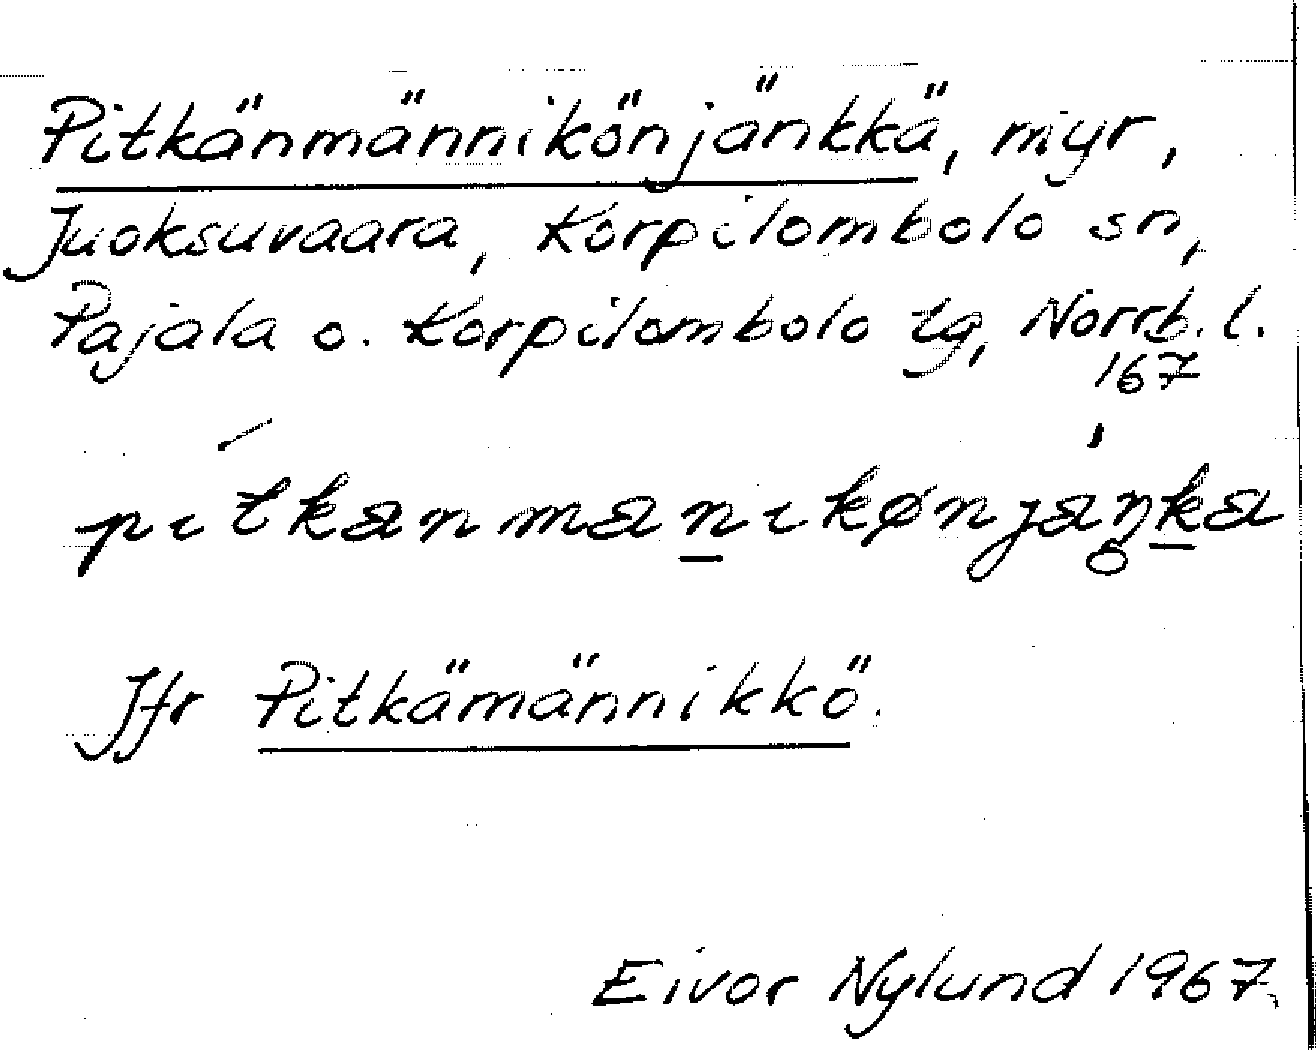 Pitkänmännikönjänkkä, myr,
Juoksuvaara, Korpilombolo sn,
Pajala o. Korpilombolo tg, Norrb. l.
167
Jfr Pitkämännikkö.
Eivor Nylund 1967.